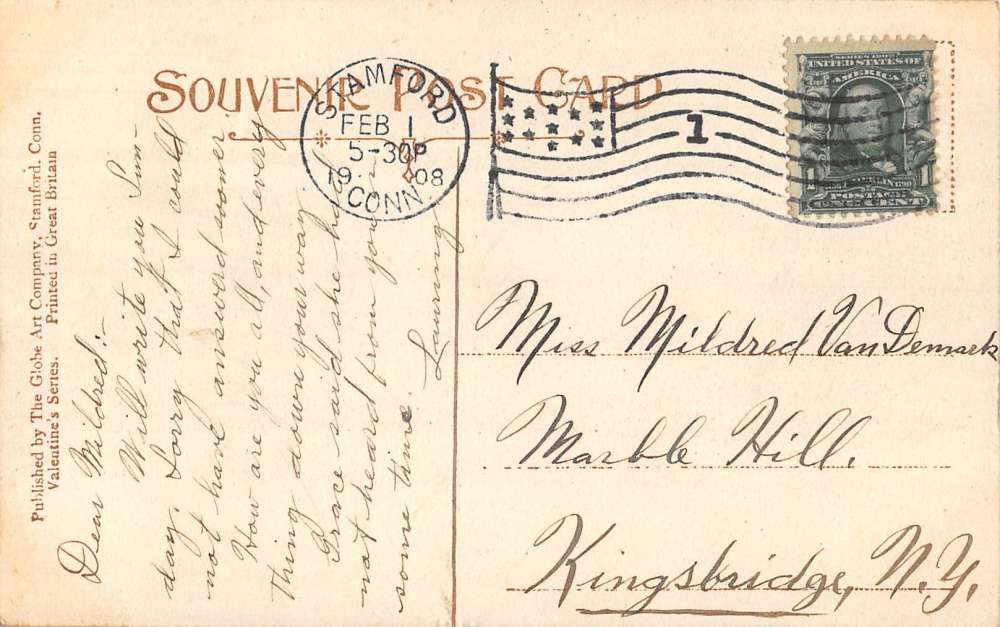 SOUVENIR POST CARD
STAMFORD
FEB 1
5-30P
1908
CONN.
1
SERIES 1902
UNITED STATES OF
AMERICA
1 1
POSTAGE
ONE CENT
Published by The Globe Art Company, Stamford, Conn.
Valentine's Series. Printed in Great Britain
Dear Mildred:-
Will write you Sun-
day. Sorry that I could
not have answerd sooner.
How are you all, and every
thing down your way.
Grace said she had
not heard from you in
some time.
Miss Mildred VanDemark
Marble Hill.
Kingsbridge, N.Y.